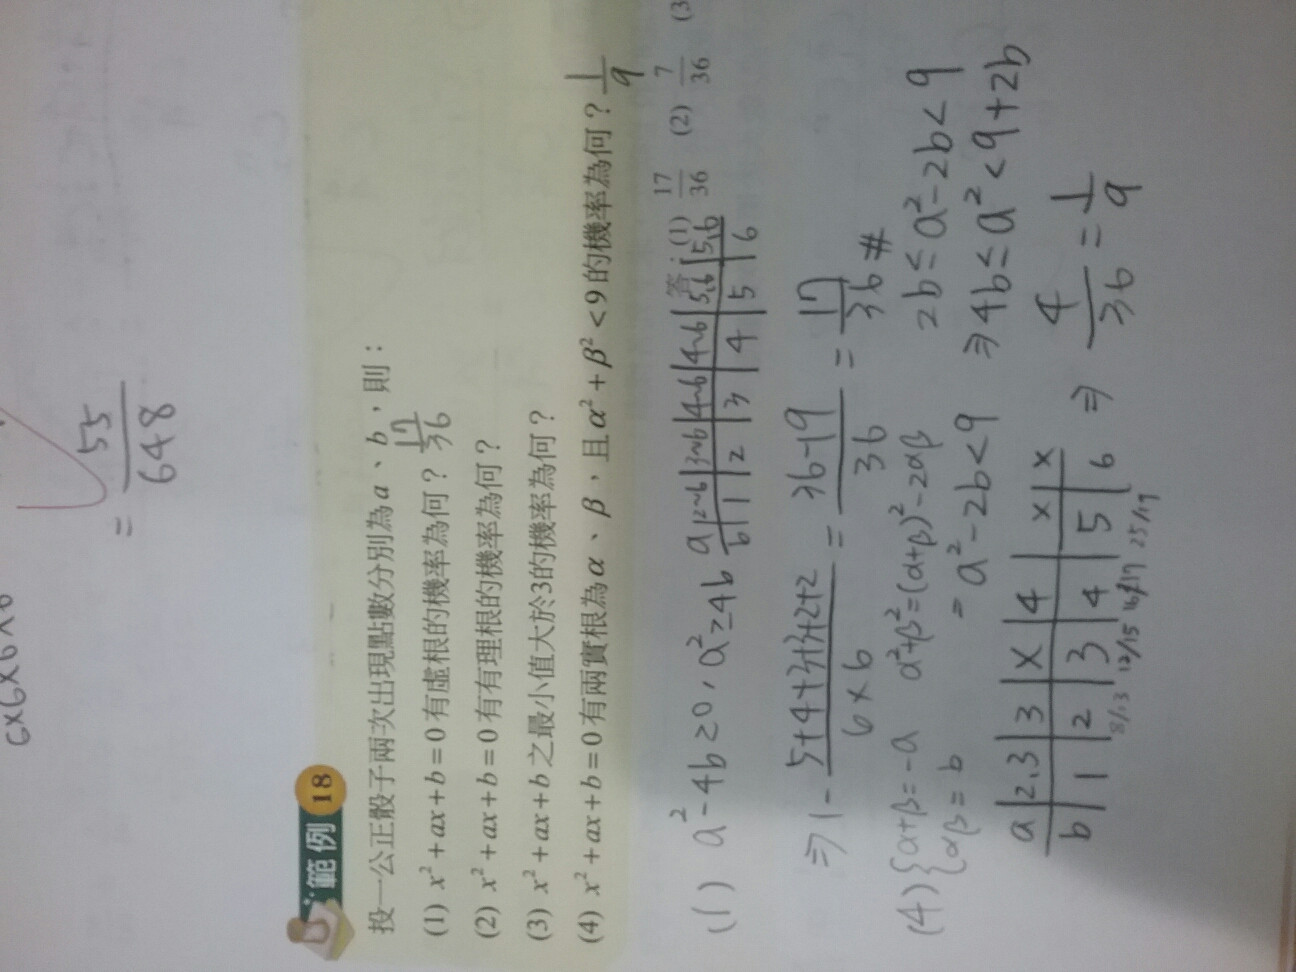 6×6×6
= 55/648
範例 18
投一公正骰子兩次出現點數分別為a、b，則：
(1) x²+ax+b=0有虛根的機率為何？ 17/36
(2) x²+ax+b=0有有理根的機率為何？
(3) x²+ax+b之最小值大於3的機率為何？
(4) x²+ax+b=0有兩實根為α、β，且α²+β²<9的機率為何？ 1/9
答：(1) 17/36 (2) 7/36 (3
(1) a²-4b≥0, a²≥4b
a | 2~6 | 3~6 | 4~6 | 4~6 | 5,6 | 5,6
b | 1 | 2 | 3 | 4 | 5 | 6
⇒ 1 - 5+4+3+3+2+2/6×6 = 36-19/36 = 17/36 #
(4) { α+β=-a α²+β²=(α+β)²-2αβ 2b≤a²-2b<9
αβ=b =a²-2b<9 ⇒4b≤a²<9+2b
a | 2.3 | 3 | × | 4 | × | ×
b | 1 | 2 | 3 | 4 | 5 | 6 ⇒ 4/36 = 1/9
8/13 12/15 16/17